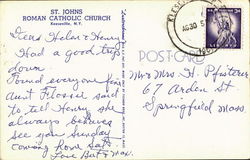 ST. JOHNS
ROMAN CATHOLIC CHURCH
Keeseville, N.Y.
Dear Helen & Henri
Had a good trip
down.
Found everyone fine
Aunt Flossie said
to tell Henry she
always believes
see you Sunday
coming home
Love Bert & Max.
POSTCARD
Mr & Mrs H. Pfisterer
67 Arden St
Springfield Mass.